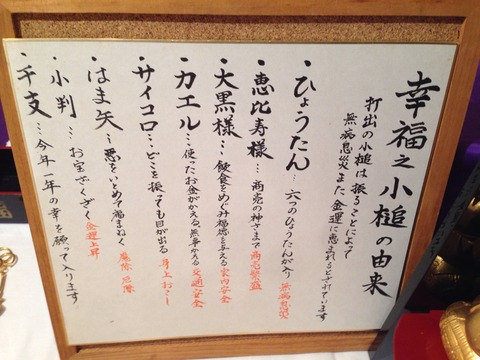 幸福之小槌の由来
打出の小槌は振ることによって
無病息災また金運に恵まれるとされています
・ひょうたん…六つのひょうたんが入り 無病息災
・恵比寿様…商売の神さまで 商売繁盛
・大黒様…飲食をめぐみ福徳を与える 家内安全
・カエル…使ったお金がかえる、無事かえる 交通安全
・サイコロ…どこを振っても目が出る 身上おこし
・はま矢…悪をいとめて福まねく 魔除 厄除
・小判…お宝ざくざく 金運上昇
・干支…今年一年の幸を願って入ります